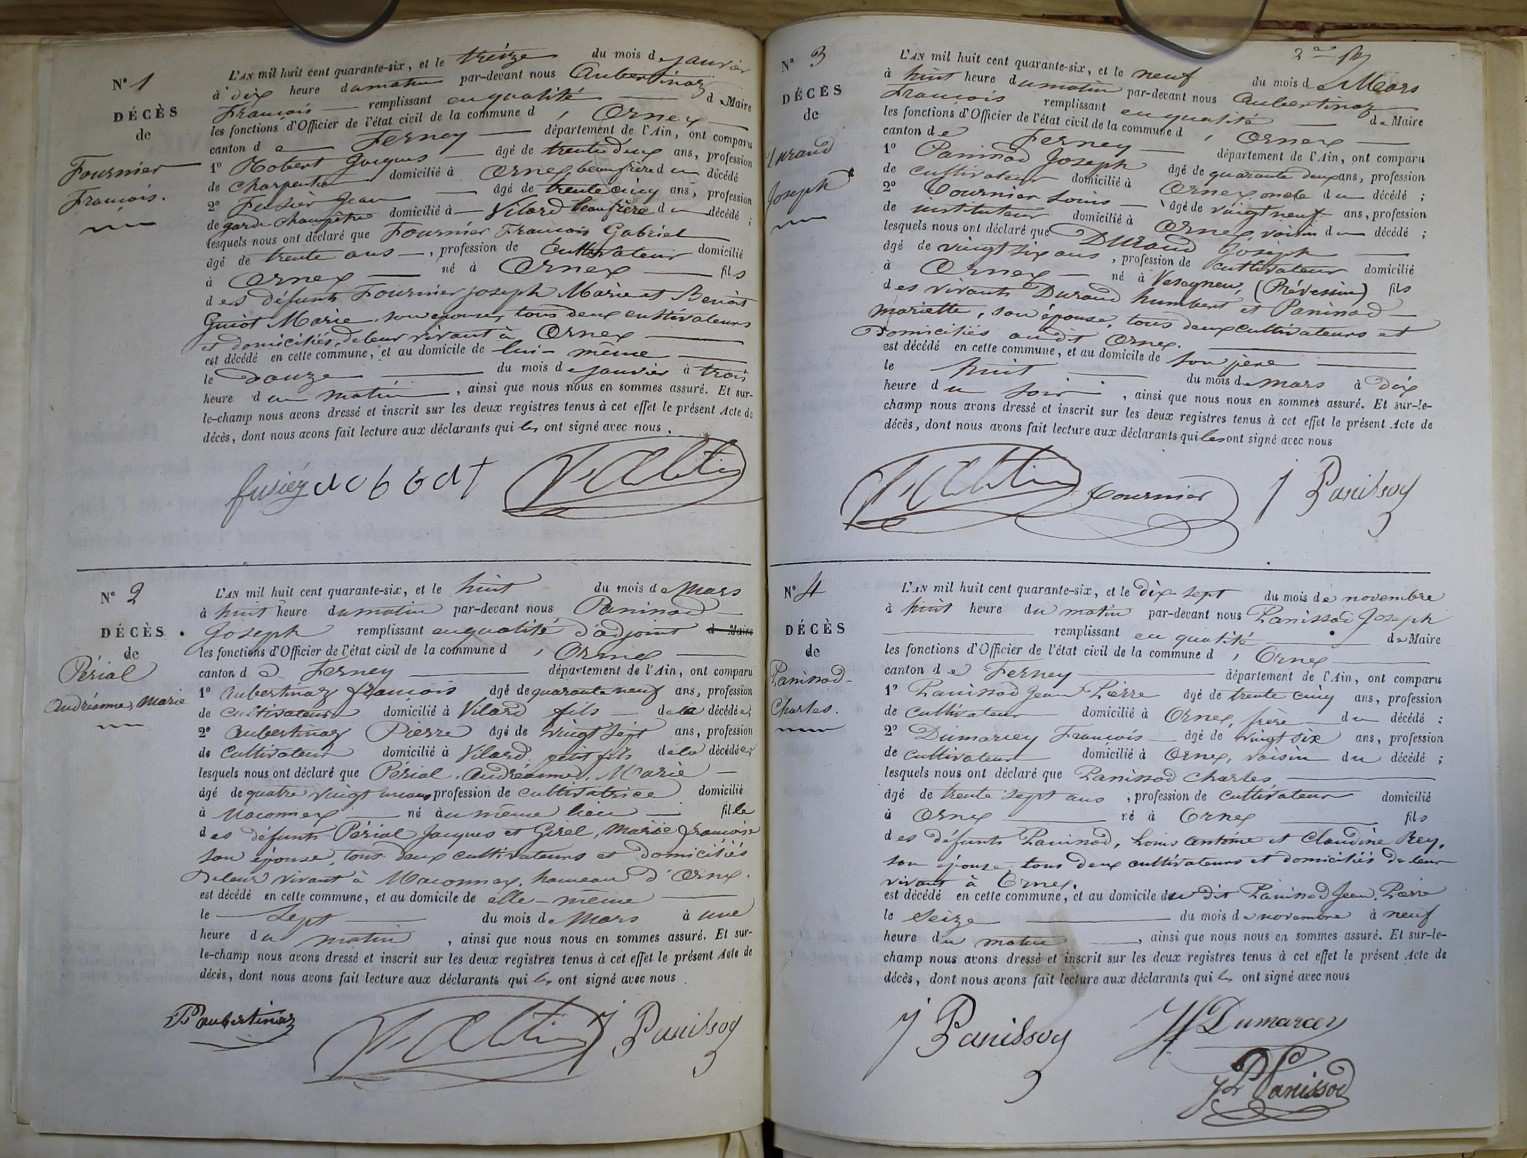 N° 1
DÉCÈS
de
Fournier
François.
L'AN mil huit cent quarante-six, et le treize du mois de janvier
à dix heure du matin par-devant nous Aubertinaz
François remplissant en qualité de Maire
les fonctions d'Officier de l'état civil de la commune d' Ornex
canton de Ferney département de l'Ain, ont comparu
1° Robert Jacques âgé de trente deux ans, profession
de charpentier domicilié à Ornex, beau frère du décédé
2° Jean âgé de trente cinq ans, profession
de garde champêtre domicilié à Vilard beau frère du décédé ;
lesquels nous ont déclaré que Fournier François Gabriel
âgé de trente ans , profession de cultivateur domicilié
à Ornex né à Ornex fils
des défunts Fournier joseph Marie et Benoit
Guiot Marie son épouse, tous deux cultivateurs
et domiciliés, de leur vivant à Ornex
est décédé en cette commune, et au domicile de lui-même
le douze du mois de janvier à trois
heure du matin , ainsi que nous nous en sommes assuré. Et sur-
le-champ nous avons dressé et inscrit sur les deux registres tenus à cet effet le présent Acte de
décès, dont nous avons fait lecture aux déclarants qui les ont signé avec nous.
N° 2
DÉCÈS
de
Périal
Andréanne, Marie
L'AN mil huit cent quarante-six, et le huit du mois de Mars
à huit heure du matin par-devant nous Panissod
Joseph remplissant en qualité d'adjoint de Maire
les fonctions d'Officier de l'état civil de la commune d' Ornex
canton de Ferney département de l'Ain, ont comparu
1° Aubertinaz françois âgé de quarante neuf ans, profession
de cultivateur domicilié à Vilard fils de la décédée;
2° Aubertinaz Pierre âgé de vingt sept ans, profession
de cultivateur domicilié à Vilard, petit fils de la décédée;
lesquels nous ont déclaré que Périal, Andréanne, Marie
âgé de quatre vingt un ans, profession de cultivatrice domicilié
à Maconnex né au même lieu fille
des défunts Périal Jacques et Girel, Marie françoise
son épouse, tous deux cultivateurs et domiciliés
de leur vivant à Maconnex, hameau d'Ornex.
est décédé en cette commune, et au domicile de elle-même
le Sept du mois de Mars à une
heure du matin , ainsi que nous nous en sommes assuré. Et sur-
le-champ nous avons dressé et inscrit sur les deux registres tenus à cet effet le présent Acte de
décès, dont nous avons fait lecture aux déclarants qui les ont signé avec nous.
P aubertinaz J Panissod
N° 3
DÉCÈS
de
Durand
Joseph
L'AN mil huit cent quarante-six, et le neuf du mois de Mars
à huit heure du matin par-devant nous Aubertinaz
François remplissant en qualité de Maire
les fonctions d'Officier de l'état civil de la commune d' Ornex
canton de Ferney département de l'Ain, ont comparu
1° Panissod Joseph âgé de quarante deux ans, profession
de cultivateur domicilié à Ornex oncle du décédé ;
2° Tournier Louis âgé de vingt neuf ans, profession
de instituteur domicilié à Ornex voisin du décédé ;
lesquels nous ont déclaré que Durand Joseph
âgé de vingt six ans , profession de cultivateur domicilié
à Ornex né à Vesegneu, (Prévessin) fils
des vivants Durand humbert et Panissod
mariette, son épouse, tous deux cultivateurs et
Domiciliés audit Ornex.
est décédé en cette commune, et au domicile de son père
le huit du mois de mars à dix
heure du soir , ainsi que nous nous en sommes assuré. Et sur-le-
champ nous avons dressé et inscrit sur les deux registres tenus à cet effet le présent Acte de
décès, dont nous avons fait lecture aux déclarants qui les ont signé avec nous
Tournier J Panissod
N° 4
DÉCÈS
de
Panissod
Charles.
L'AN mil huit cent quarante-six, et le dix sept du mois de novembre
à huit heure du matin par-devant nous Panissod Joseph
remplissant en qualité de Maire
les fonctions d'Officier de l'état civil de la commune d' Ornex
canton de Ferney département de l'Ain, ont comparu
1° Panissod Jean Pierre âgé de trente cinq ans, profession
de cultivateur domicilié à Ornex, frère du décédé ;
2° Dumarcey François âgé de vingt six ans, profession
de cultivateur domicilié à Ornex, voisin du décédé ;
lesquels nous ont déclaré que Panissod Charles
âgé de trente sept ans , profession de cultivateur domicilié
à Ornex né à Ornex fils
des défunts Panissod, Louis antoine et Claudine Rey,
son épouse, tous deux cultivateurs et domiciliés de leur
vivant à Ornex.
est décédé en cette commune, et au domicile du dit Panissod Jean Pierre
le Seize du mois de novembre à neuf
heure du matin , ainsi que nous nous en sommes assuré. Et sur-le-
champ nous avons dressé et inscrit sur les deux registres tenus à cet effet le présent Acte de
décès, dont nous avons fait lecture aux déclarants qui les ont signé avec nous
J Panissod Dumarcey
Panissod